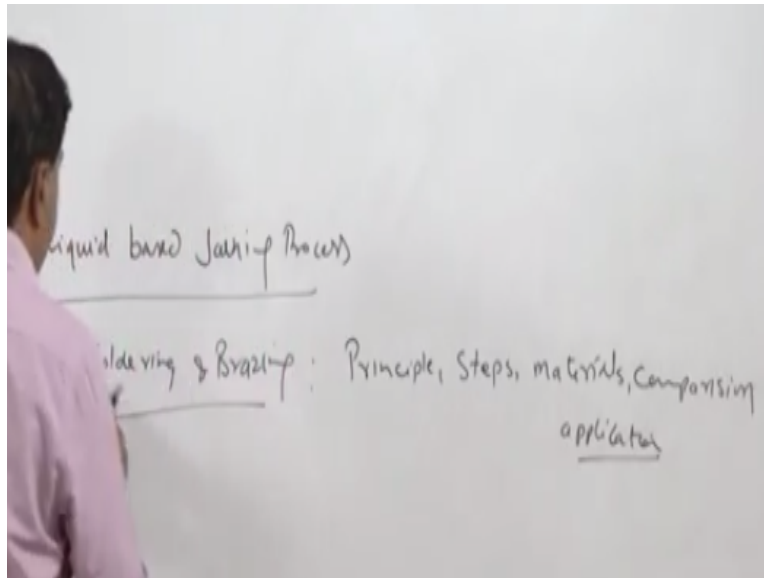 iquid based Joining Process
oldering & Brazing : Principle, Steps, materials, Comparision
application